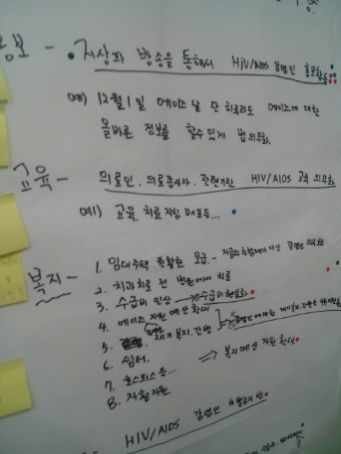 홍보 - 지상파 방송을 통해서 HIV/AIDS 감염인 홍보활동
예) 12월 1일 에이즈 날 단 하루라도 에이즈에 대한
올바른 정보를 할수있게 법 의무화.
교육 - 의료인, 의료종사자, 관련기관 HIV/AIDS 교육 의무화
예1) 교육, 치료지침 배포등...
복지 - 1. 임대주택 원활한 공급 -
2. 치과치료 전 병원에서 치료
3. 수급비 인상
4. 에이즈 지원 예산 확대
5. 재가복지, 간병
6. 쉼터 ⇒ 복지 예산 지원 확대
7. 호스피스 등...
8. 자활지원
HIV/AIDS 감염인